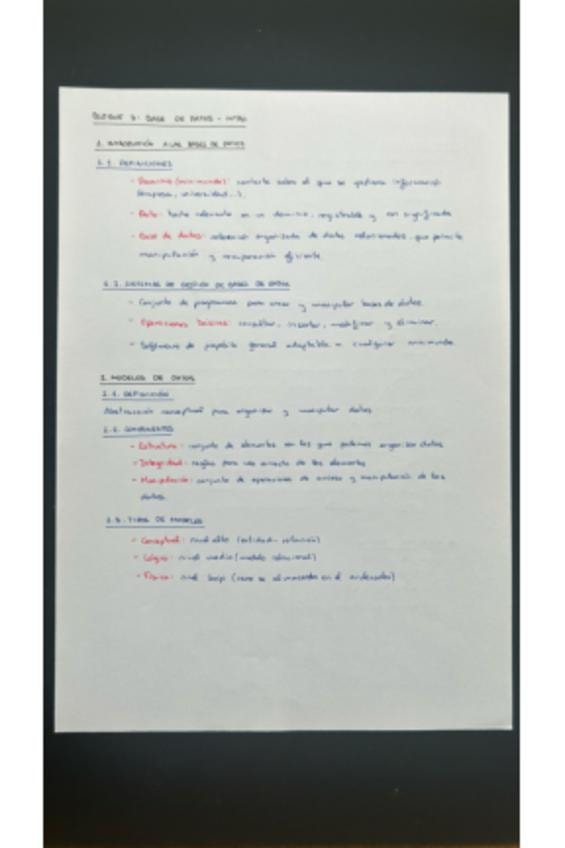 BLOQUE 3: BASE DE DATOS - INTRO
1. INTRODUCCIÓN A LAS BASES DE DATOS
1.1. DEFINICIONES
- Dominio (mini-mundo): contexto sobre el que se gestiona información
(empresa, universidad...).
- Dato: hecho relevante en un dominio, registrable y con significado
- Base de datos: colección organizada de datos relacionados, que permite
manipulación y recuperación eficiente.
1.2. SISTEMAS DE GESTIÓN DE BASES DE DATOS
- Conjunto de programas para crear y manipular bases de datos.
- Operaciones básicas: consultar, insertar, modificar y eliminar.
- Software de propósito general adaptable a cualquier minimundo.
2. MODELOS DE DATOS
2.1. DEFINICIÓN
Abstracción conceptual para organizar y manipular datos
2.2. COMPONENTES
- Estructura: conjunto de elementos en los que podemos organizar datos
- Integridad: reglas para uso correcto de los elementos
- Manipulación: conjunto de operaciones de acceso y manipulación de los
datos.
2.3. TIPOS DE MODELOS
- Conceptual: nivel alto (entidad-relación)
- Lógico: nivel medio (modelo relacional)
- Físico: nivel bajo (como se almacenan en el ordenador)